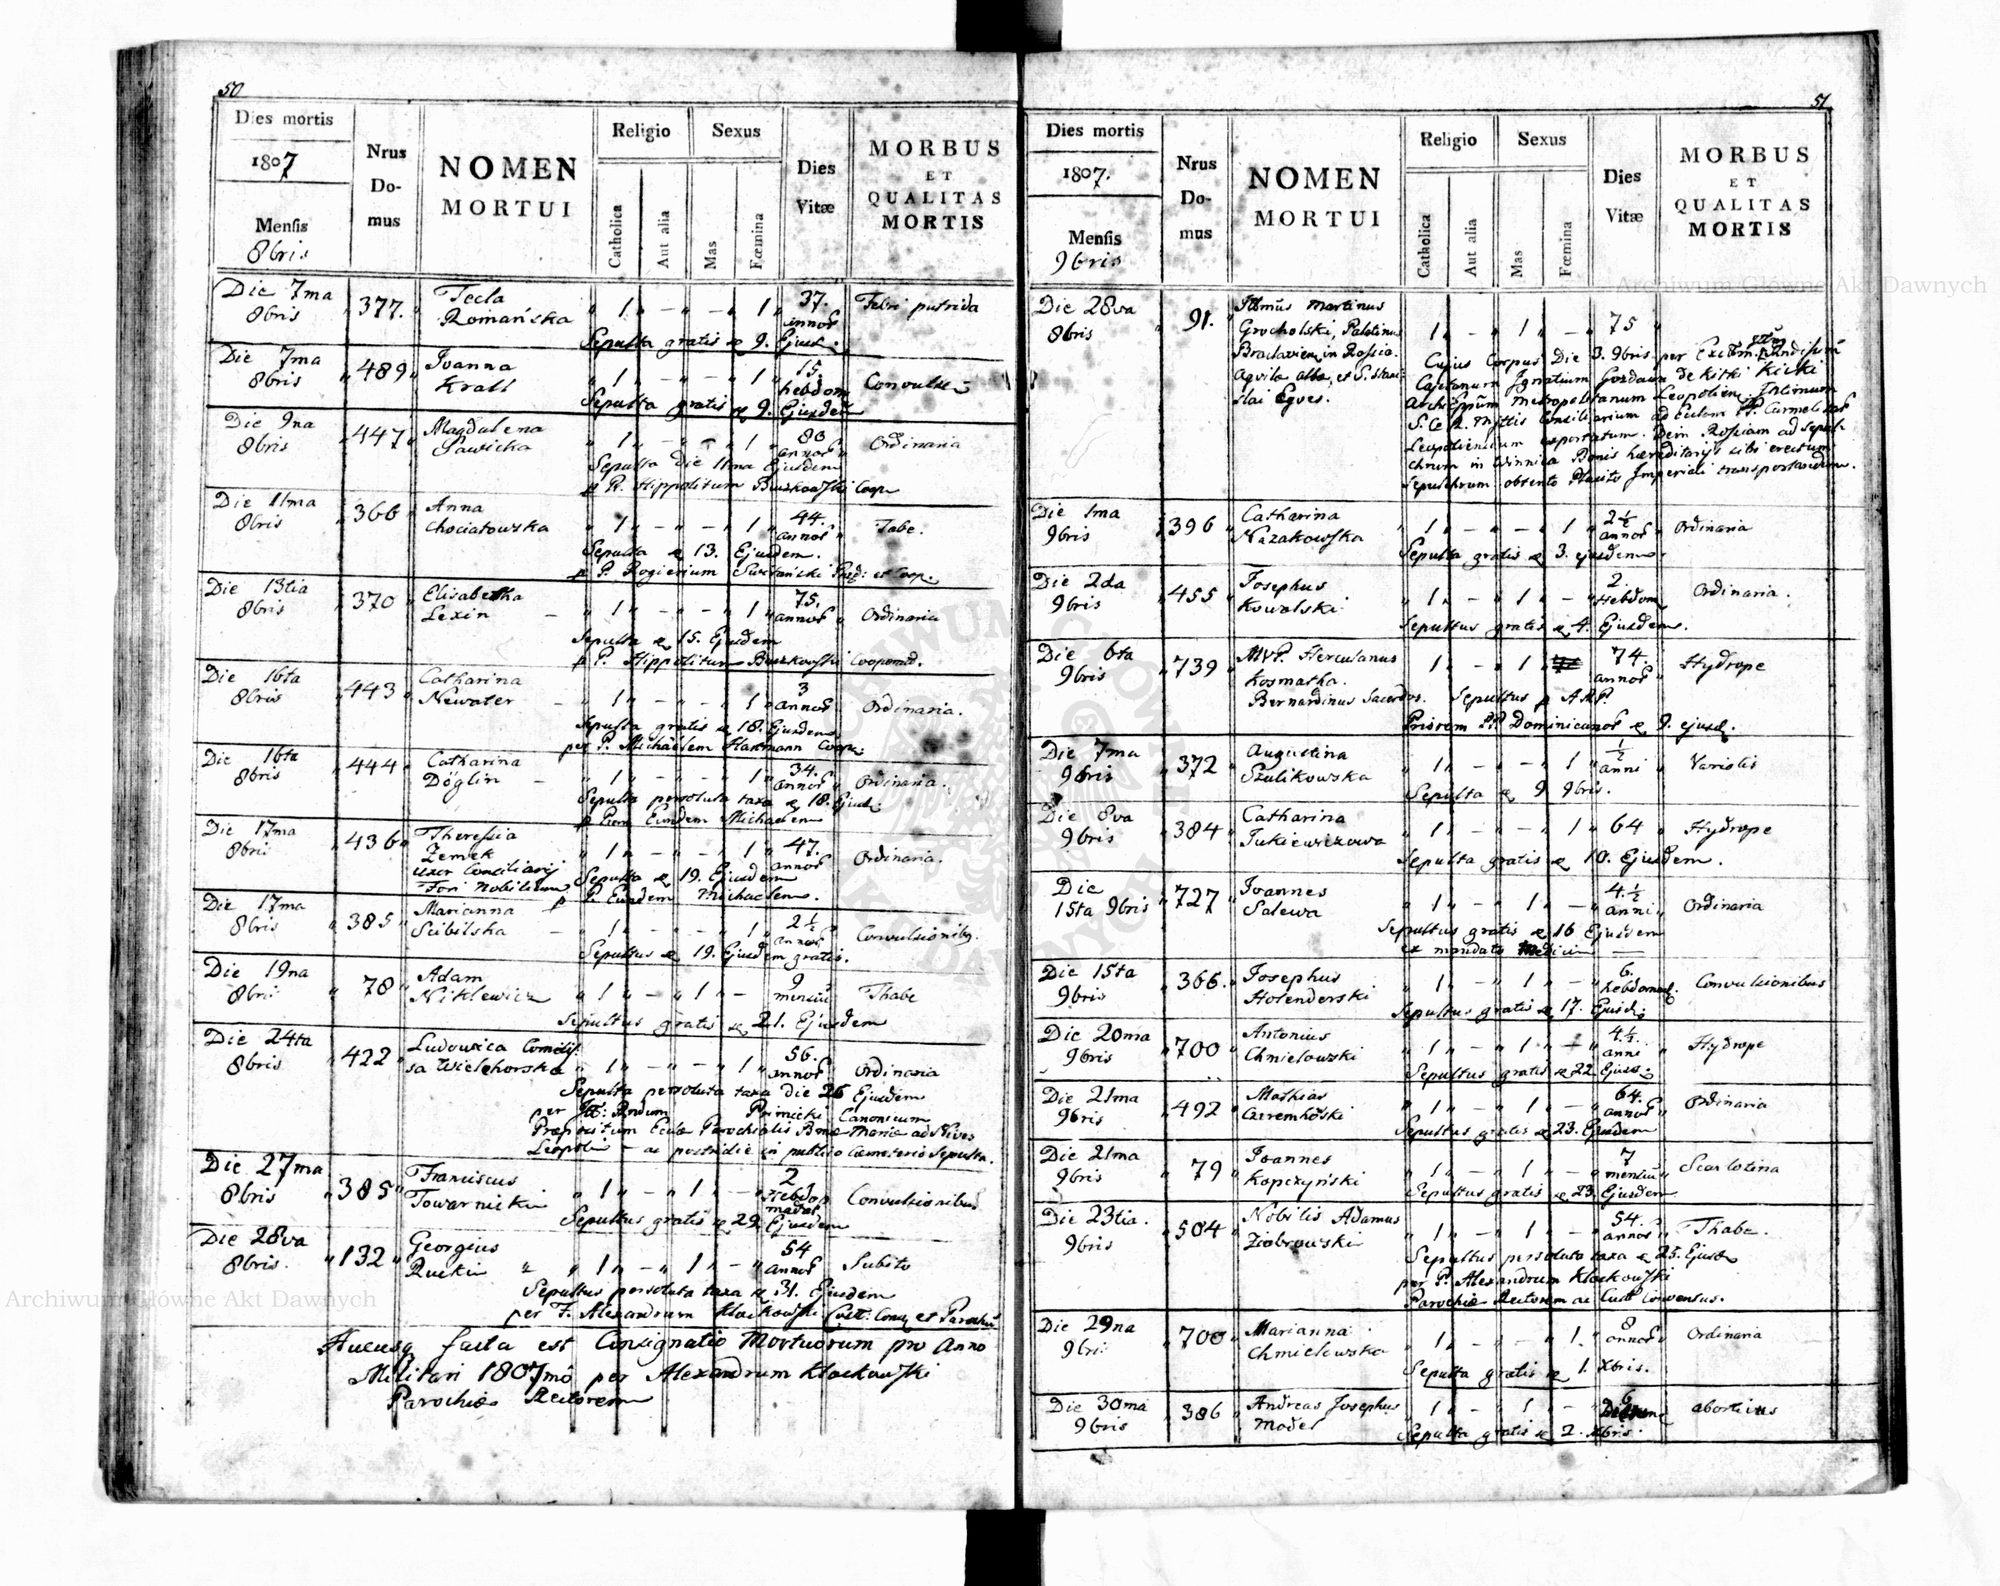 50
Dies mortis
1807
Mensis
8bris
Nrus Domus
NOMEN
MORTUI
Religio
Catholica
Aut alia
Sexus
Mas
Fœmina
Dies
Vitæ
MORBUS
ET
QUALITAS
MORTIS
Die 7ma 8bris 377. Tecla Romańska 1 1 37. annor Febri putrida
Sepulta gratis 9. Ejusd.
Die 7ma 8bris 489 Joanna Krall 1 1 15. hebdom Convuls
Sepulta gratis 9. Ejusdem
Die 9na 8bris 447 Magdalena 1 1 80 annor Ordinaria
Sepulta Die 11ma Ejusdem
p P. Hippolitum Buszkowski Coop
Die 11ma 8bris 366 Anna Chociatowska 1 1 44. annor Tabe.
Sepulta 13. Ejusdem.
p P. Rogierium et Coop.
Die 13tia 8bris 370 Elisabetha Lexin 1 1 75. annor Ordinaria
Sepulta 15. Ejusdem
p P. Hippolitum Buszkowski Cooperat.
Die 16ta 8bris 443 Catharina Newater 1 1 3 annor Ordinaria.
Sepulta gratis 18. Ejusdem
per P. Michaelem Hartmann Coop
Die 16ta 8bris 444 Catharina Döglin 1 1 34. annor Ordinaria.
Sepulta persoluta taxa 18. Ejusd.
p Eundem Michaelem
Die 17ma 8bris 436 Theressia Zemek uxor Consiliarij Fori Nobilium 1 1 47. annor Ordinaria.
Sepulta 19. Ejusdem
p P. Eundem Michaelem.
Die 17ma 8bris 385 Marianna Scibilska 1 1 2½ annor Convulsionibq.
Sepultus 19. Ejusdem gratis.
Die 19na 8bris 78 Adam Niklewicz 1 1 9 mensiu Thabe
Sepultus gratis 21. Ejusdem
Die 24ta 8bris 422 Ludovica Comitissa Wielehorska 1 1 56. annor Ordinaria
Sepulta persoluta taxa die 26 Ejusdem
per Rndum Canonicum
Præpositum Eccle Parochialis Bmæ Mariæ ad Nives
Leopoli ac postridie in publico Cæmeterio Sepulta.
Die 27ma 8bris 385 Franciscus Towarnicki 1 1 2 Hebdomadar Convulsionibus
Sepultus gratis 29 Ejusdem
Die 28va 8bris. 132 Georgius Rucki 1 1 54 annor Subito
Sepultus persoluta taxa 31. Ejusdem
per F. Alexandrum Klockowski
Hucusq facta est Consignatio Mortuorum pro Anno
Militari 1807mo per Alexandrum Klockowski
Parochiæ Rectorem
51
Dies mortis
1807.
Mensis
9bris
Nrus Domus
NOMEN
MORTUI
Religio
Catholica
Aut alia
Sexus
Mas
Fœmina
Dies
Vitæ
MORBUS
ET
QUALITAS
MORTIS
Die 28va 8bris 91. Martinus Grocholski, Palatinus Braclavien in Rossia. Aquila alba, et S. Stanislai Eques. 1 1 75
Cujus Corpus Die 3. 9bris per
Cajetanum Ignatium de Kitki Kicki
Archiēppum Metropolitanum Leopolien. Intimum
Consiliarium ad Carmelitar
Leopoliensium exportatum. Dein Rossiam ad sepulchrum in Winnica Bonis hæreditarijs sibi erectum
Sepulchrum obtento Placito Imperiali transportandum.
Die 1ma 9bris 396 Catharina Nazakowska 1 1 2½ annor Ordinaria
Sepulta gratis 3. ejusdem.
Die 2da 9bris 455 Josephus Kowalski 1 1 2. Hebdom Ordinaria.
Sepultus gratis 4. Ejusdem.
Die 6ta 9bris 739 Herculanus Kosmatka. Bernardinus Sacerdos. 1 1 74. annor Hydrope
Sepultus p A.R.P.
Priorem PP Dominicanor 9. ejusd.
Die 7ma 9bris 372 Augustina Szulikowska 1 1 ½ anni Variolis
Sepulta 9 9bris.
Die 8va 9bris 384 Catharina Jukiewiczowa 1 1 64 Hydrope
Sepulta gratis 10. Ejusdem.
Die 15ta 9bris 727 Joannes Salewa 1 1 4½ anni Ordinaria
Sepultus gratis 16 Ejusdem
ex mandato Medici
Die 15ta 9bris 366. Josephus Holenderski 1 1 6. hebdomad. Convulsionibus
Sepultus gratis 17. Ejusd.
Die 20ma 9bris 700 Antonius Chmielowski 1 1 4½ anni Hydrope
Sepultus gratis 22 Ejusd.
Die 21ma 9bris 492 Mathias 1 1 64. annor Ordinaria
Sepultus gratis 23. Ejusdem
Die 21ma 9bris 79 Joannes Kopczyński 1 1 7 mensiu Scarlatina
Sepultus gratis 23. Ejusdem
Die 23tia. 9bris 504 Nobilis Adamus Ziobrowski 1 1 54. annor Thabe.
Sepultus persoluta taxa 25. Ejusd
per P. Alexandrum Klockowski
Parochiæ Rectorem ac Conventus.
Die 29na 9bris 700 Marianna Chmielewska 1 1. 8 annor Ordinaria
Sepulta gratis 1. Xbris.
Die 30ma 9bris 386 Andreas Josephus Model 1 1 6 abortivus
Sepulta gratis 2. Xbris.
Archiwum Główne Akt Dawnych
Archiwum Główne Akt Dawnych
ARCHIWUM GŁÓWNE AKT DAWNYCH